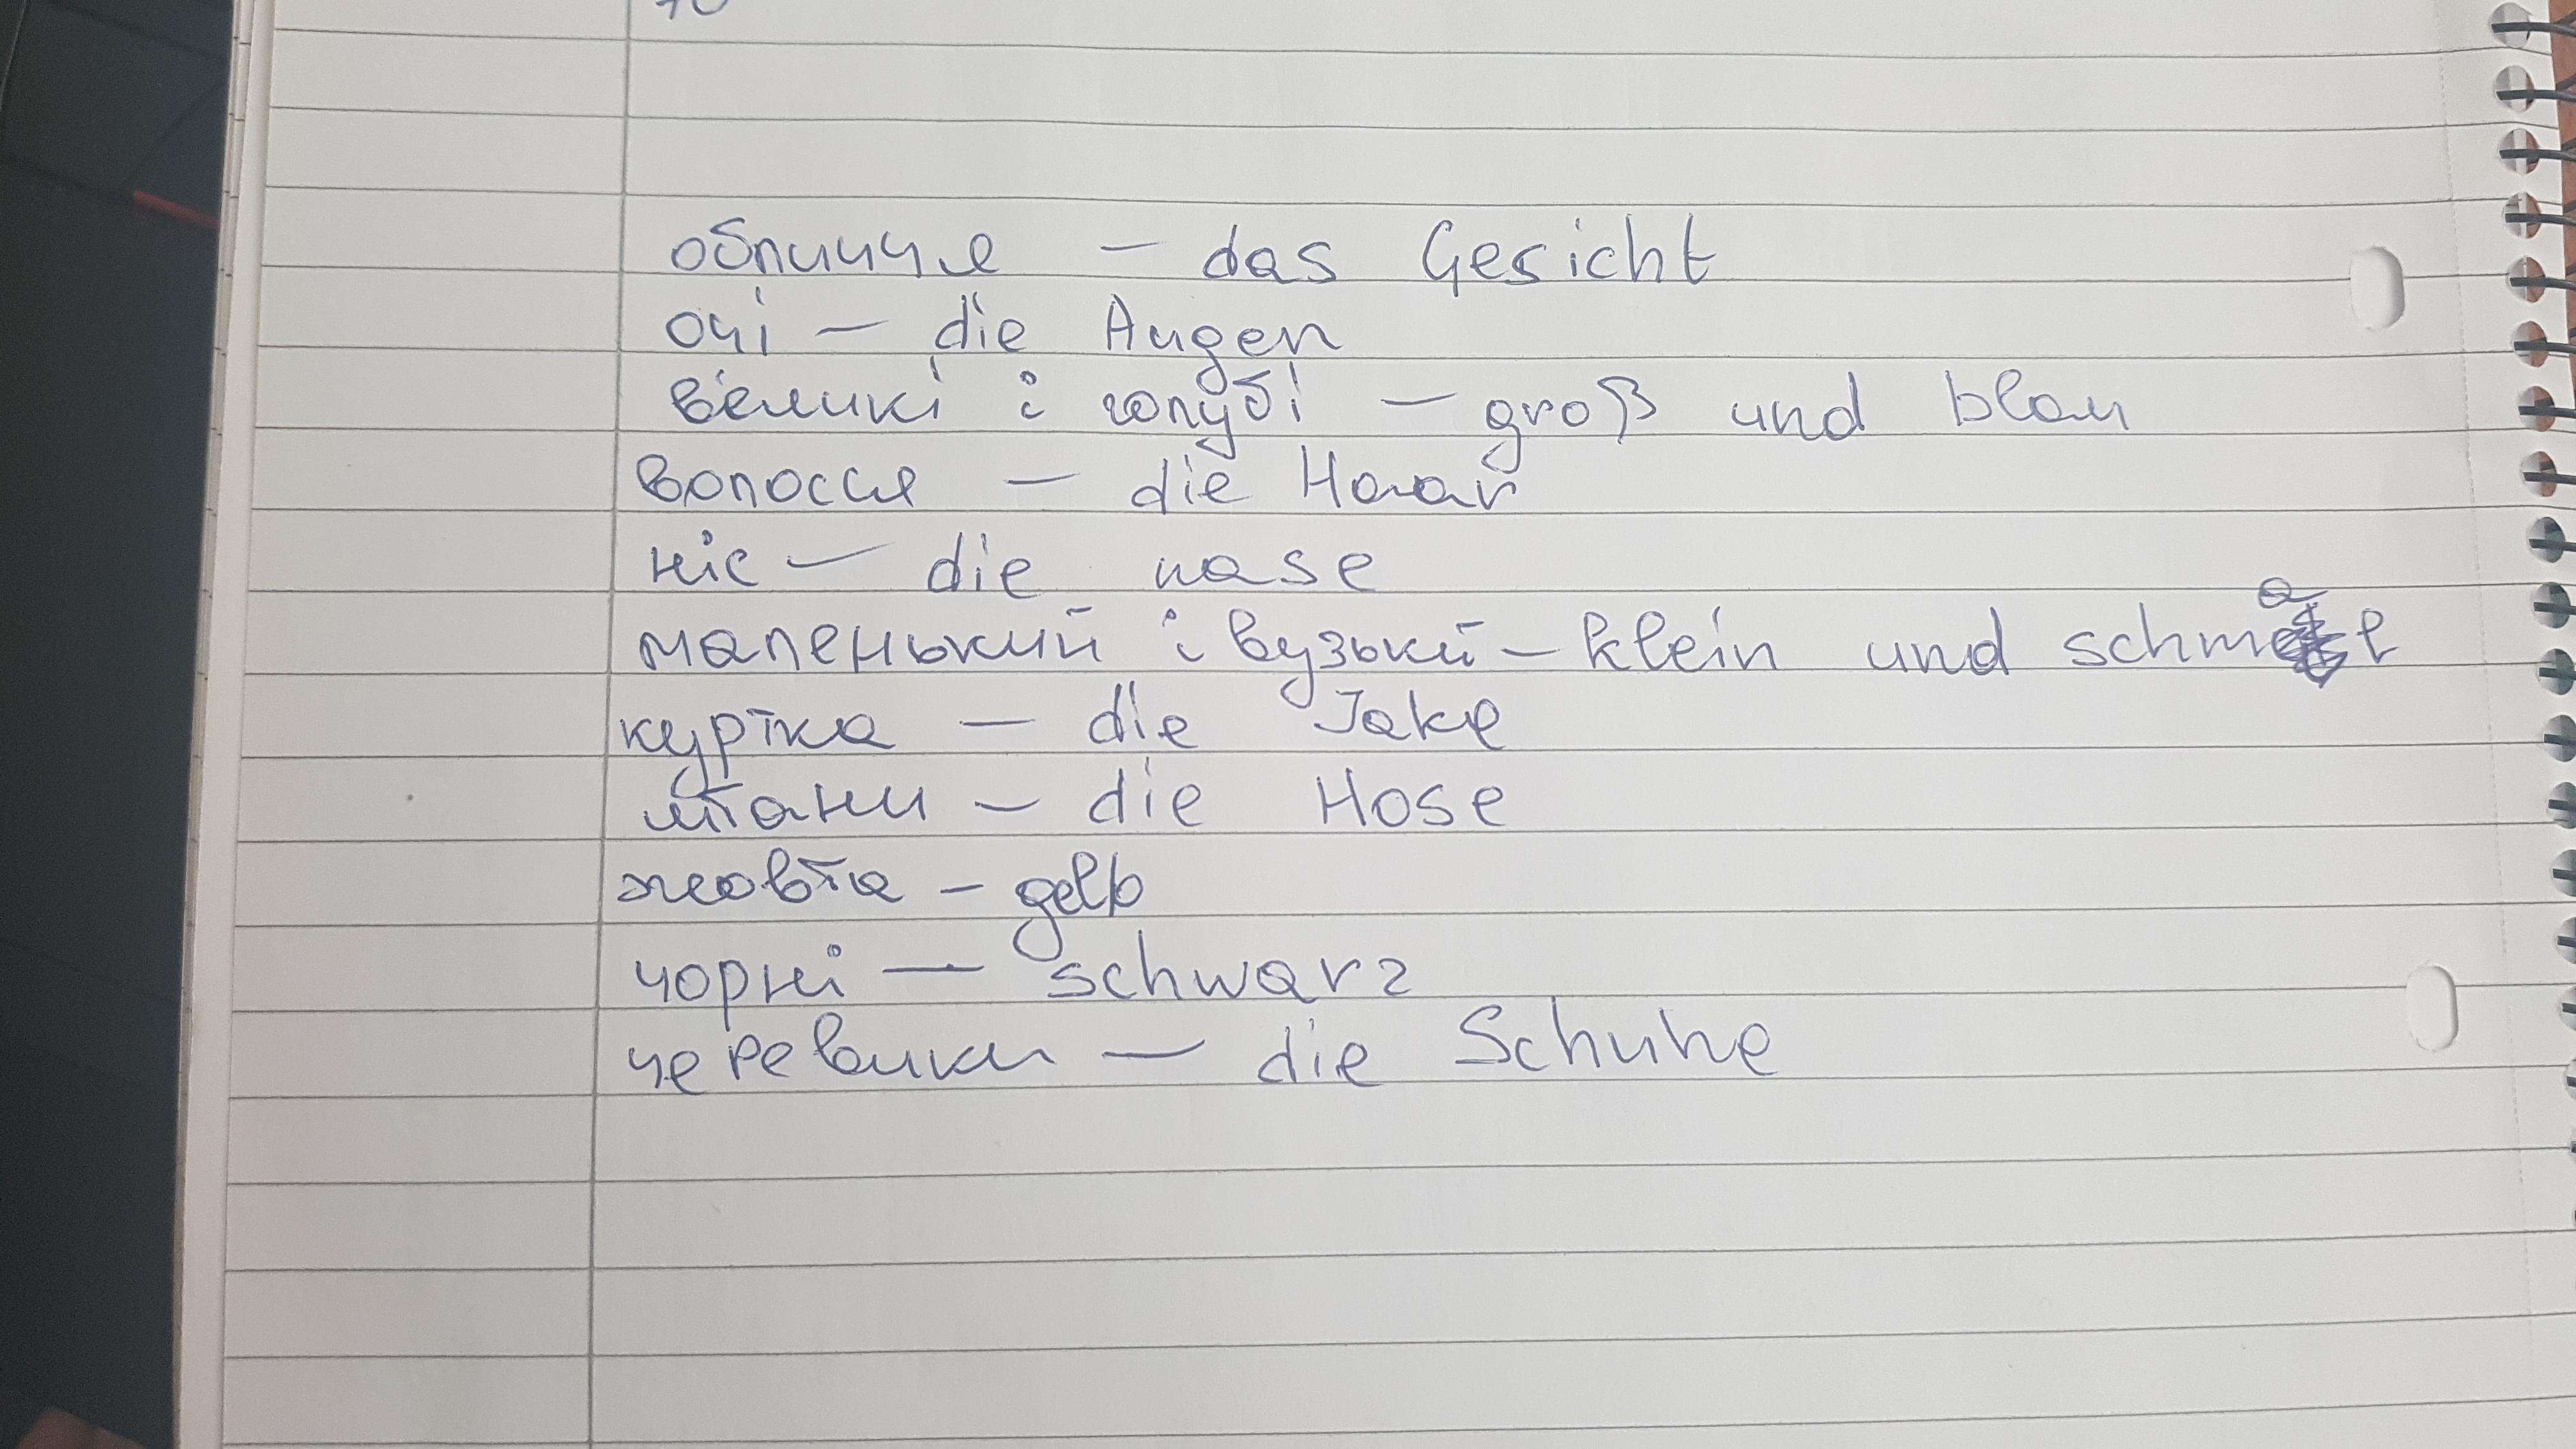 обличчя – das Gesicht
очі – die Augen
великі і голубі – groß und blau
волосся – die Haar
ніс – die nase
маленький і вузький – klein und schmal
куртка – die Jake
штани – die Hose
жовта – gelb
чорні – schwarz
черевики – die Schuhe